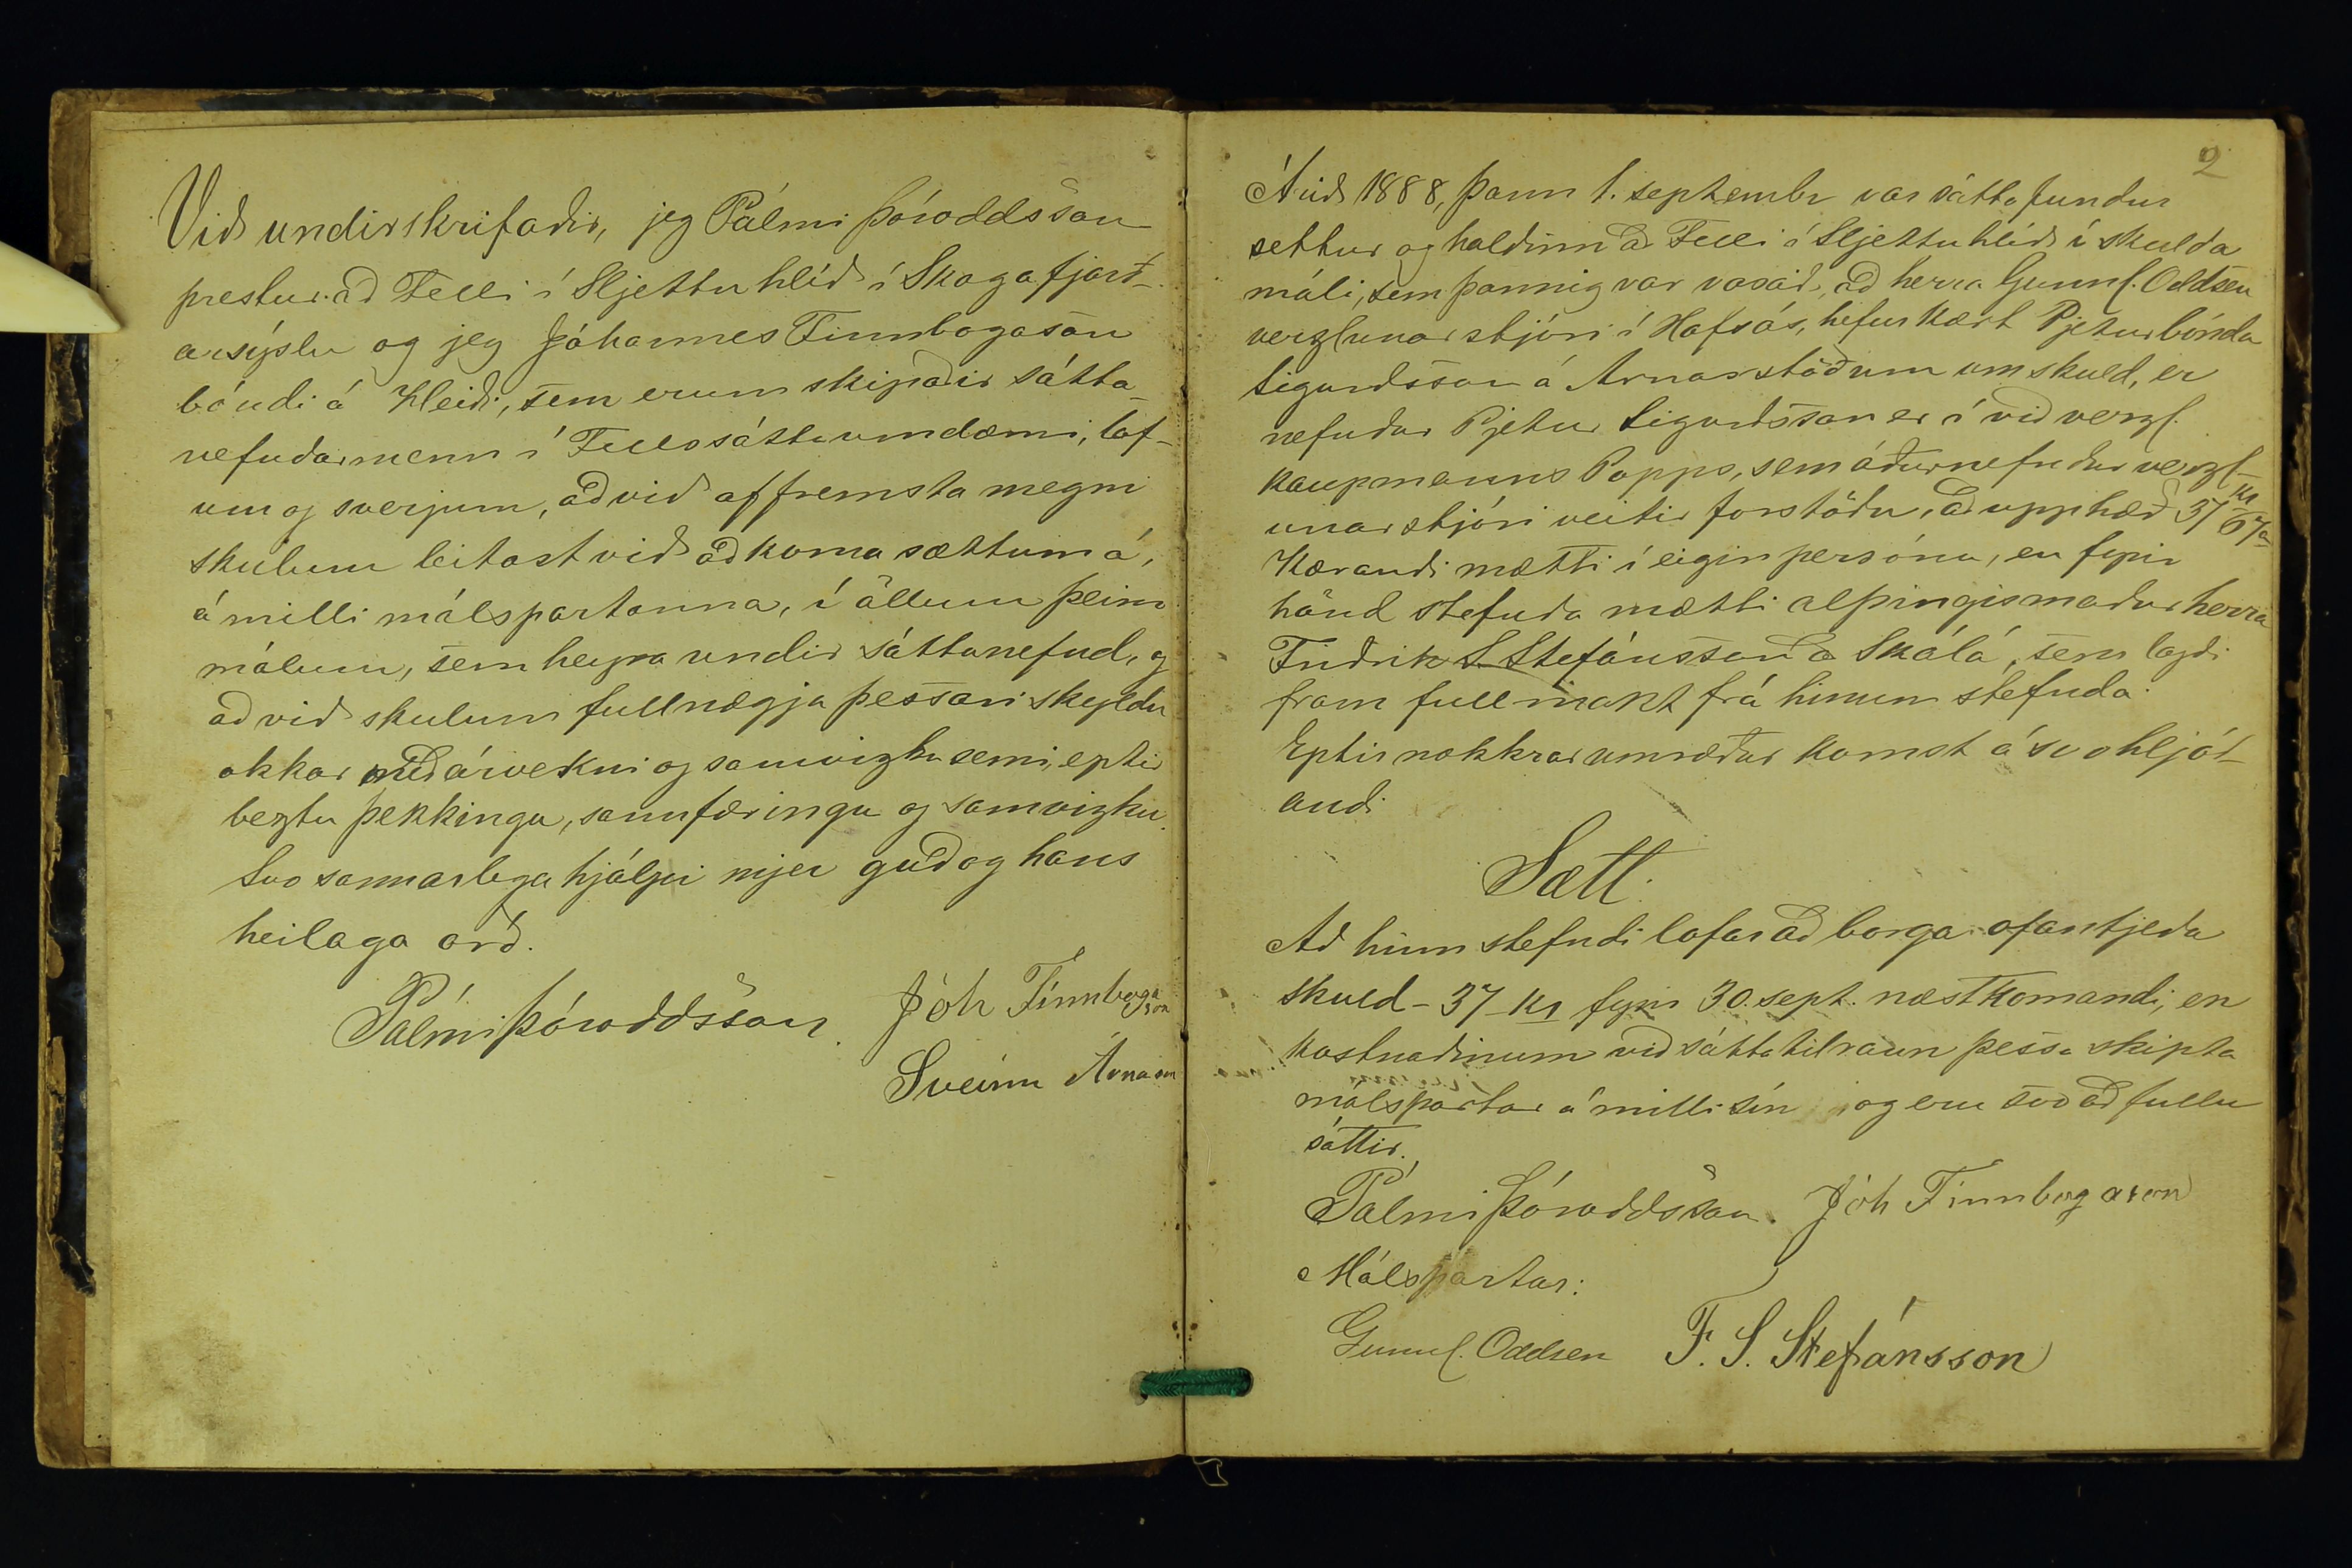 Við undirskrifaðir, jeg Pálmi Þóroddsson
prestur að Felli í Sljettuhlíð í Skagafjarð-
arsýslu og jeg Jóhannes Finnbogason
bóndi á Heiði, sem erum skipaðir sátta-
nefndarmenn í Fellssáttaumdæmi, lof-
um og sverjum, að við af fremsta megni
skulum leitast við að koma sættum á,
á milli málspartanna, í öllum þeim
málum, sem heyra undir sáttanefnd, og
að við skulum fullnægja þessari skyldu
okkar með árvekni og samvizkusemi, eptir
beztu þekkingu, sannfæringu og samvizku.
Svo sannarlega hjálpi mjer guð og hans
heilaga orð.
Pálmi Þóroddsson. Jóh Finnbogason
Sveinn Árnason
2
Árið 1888, þann 1. septembr var sáttafundur
settur og haldinn að Felli í Sljettuhlíð í skulda
máli, sem þannig var varið, að herra Gunnl. Oddsen
verzlunarstjóri í Hofsós, hefur kært Pjetur bónda
Sigurðsson á Arnarstöðum um skuld, er
nefndur Pjetur Sigurðsson er í við verzl.
kaupmanns Popps, sem áðurnefndur verzl-
unarstjóri veitir forstöðu, að upphæð 37 kr 67 a
Kærandi mætti í eigin persónu, en fyrir
hönd stefnda mætti alþingismaður herra
Friðrik S. Stefánsson á Skálá, sem lagði
fram fullmakt frá hinum stefnda.
Eptir nokkrar umræður komst á svohljóð-
andi
Sætt.
Að hinn stefndi lofar að borga ofantjeða
skuld - 37 kr fyrir 30. sept. næstkomandi, en
kostnaðinum við sáttatilraun þessa skipta
málspartar á milli sín og eru svo að fullu
sáttir.
Pálmi Þóroddsson. Jóh Finnbogason
Málspartar:
Gunnl. Oddsen F. S. Stefánsson